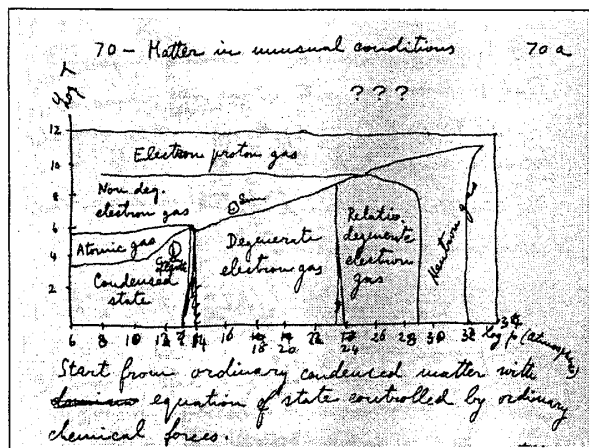 70 - Matter in unusual conditions 70 a
? ? ?
log T
12
Electron proton gas
10
Non deg.
electron gas
8
Sun
6
Atomic gas
4
Degenerate
electron gas
Relativ.
degenerate
electron
gas
Neutron gas
Condensed
state
2
6 8 10 12 14 16 18 20 22 24 26 28 30 32 34
log p (atmospheres)
Start from ordinary condensed matter with
equation of state controlled by ordinary
chemical forces.